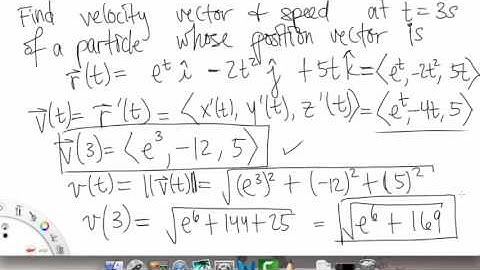 Find velocity vector & speed at t=3s
of a particle whose position vector is
r⃗(t)= e^t î - 2t² ĵ + 5t k̂ = ⟨e^t, -2t², 5t⟩
v⃗(t)= r⃗'(t) = ⟨x'(t), y'(t), z'(t)⟩ = ⟨e^t, -4t, 5⟩
v⃗(3) = ⟨e³, -12, 5⟩ ✓
v(t) = ||v⃗(t)|| = √((e³)² + (-12)² + (5)²)
v(3) = √(e⁶ + 144 + 25) = √(e⁶ + 169)